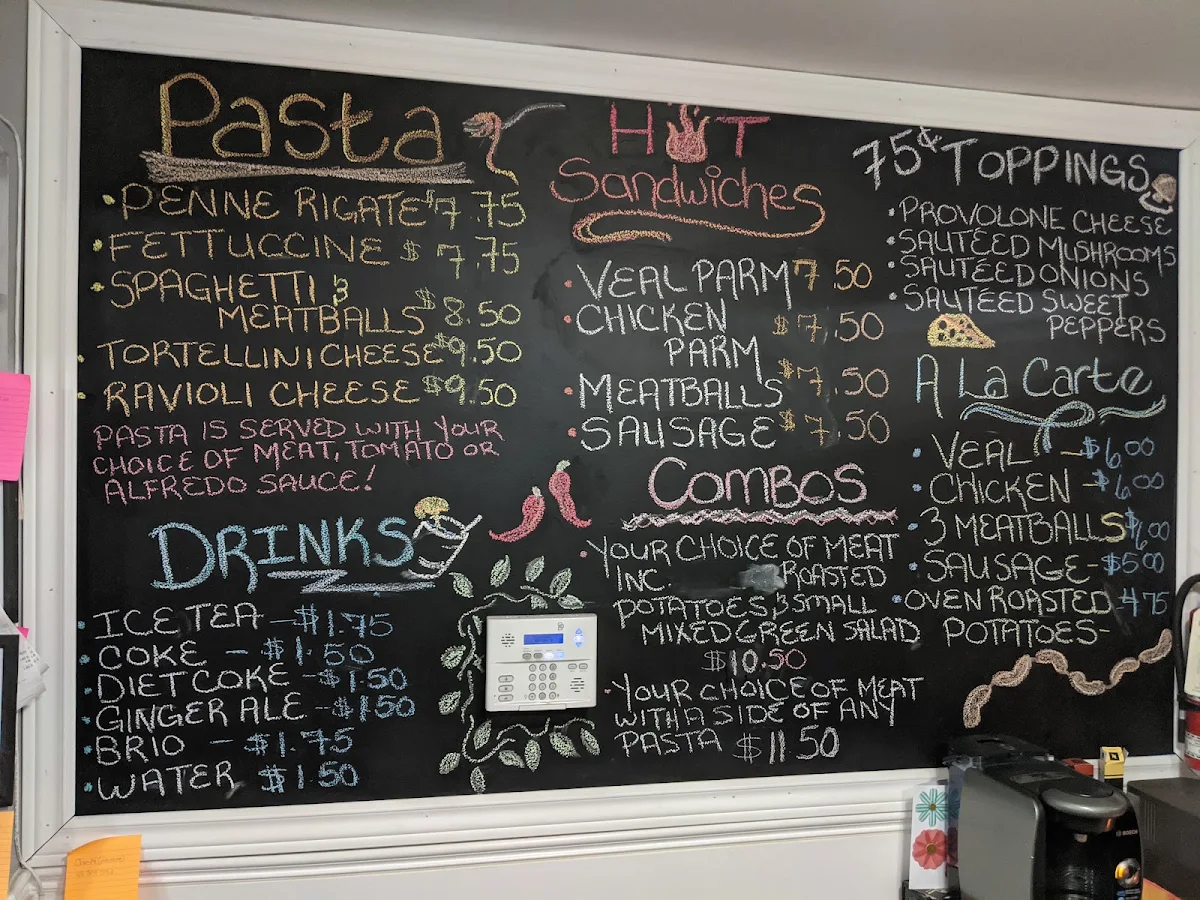 Pasta
• PENNE RIGATE $7.75
• FETTUCCINE $7.75
• SPAGHETTI &
MEATBALLS $8.50
• TORTELLINI CHEESE $9.50
• RAVIOLI CHEESE $9.50
PASTA IS SERVED WITH YOUR
CHOICE OF MEAT, TOMATO OR
ALFREDO SAUCE!
DRINKS
• ICE TEA - $1.75
• COKE - $1.50
• DIET COKE - $1.50
• GINGER ALE - $1.50
• BRIO - $1.75
• WATER $1.50
HOT
Sandwiches
• VEAL PARM 7.50
• CHICKEN $7.50
PARM
• MEATBALLS $7.50
• SAUSAGE $7.50
COMBOS
• YOUR CHOICE OF MEAT
INC. ROASTED
POTATOES & SMALL
MIXED GREEN SALAD
$10.50
• YOUR CHOICE OF MEAT
WITH A SIDE OF ANY
PASTA $11.50
75¢ TOPPINGS
• PROVOLONE CHEESE
• SAUTÉED MUSHROOMS
• SAUTÉED ONIONS
• SAUTÉED SWEET
PEPPERS
A La Carte
• VEAL - $6.00
• CHICKEN - $6.00
• 3 MEATBALLS $6.00
• SAUSAGE - $5.00
• OVEN ROASTED 4.75
POTATOES -
BOSCH